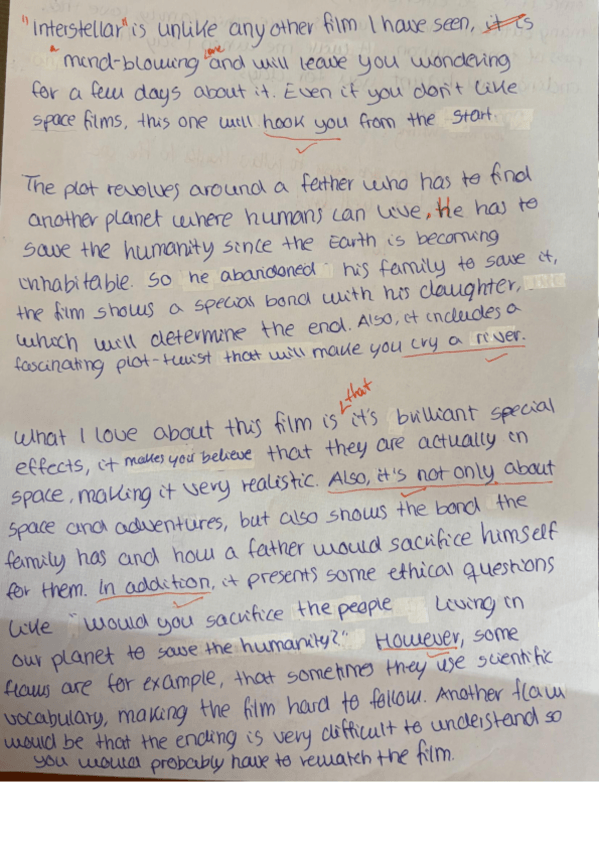 "Interstellar" is unlike any other film I have seen, it is
a mind-blowing one and will leave you wondering
for a few days about it. Even if you don't like
space films, this one will hook you from the start.
The plot revolves around a father who has to find
another planet where humans can live. He has to
save the humanity since the Earth is becoming
inhabitable. So he abandoned his family to save it,
the film shows a special bond with his daughter,
which will determine the end. Also, it includes a
fascinating plot-twist that will make you cry a river.
that
What I love about this film is it's brilliant special
effects, it makes you believe that they are actually in
space, making it very realistic. Also, it's not only about
space and adventures, but also shows the bond the
family has and how a father would sacrifice himself
for them. In addition, it presents some ethical questions
like "would you sacrifice the people living in
our planet to save the humanity?" However, some
flaws are for example, that sometimes they use scientific
vocabulary, making the film hard to follow. Another flaw
would be that the ending is very difficult to understand so
you would probably have to rewatch the film.